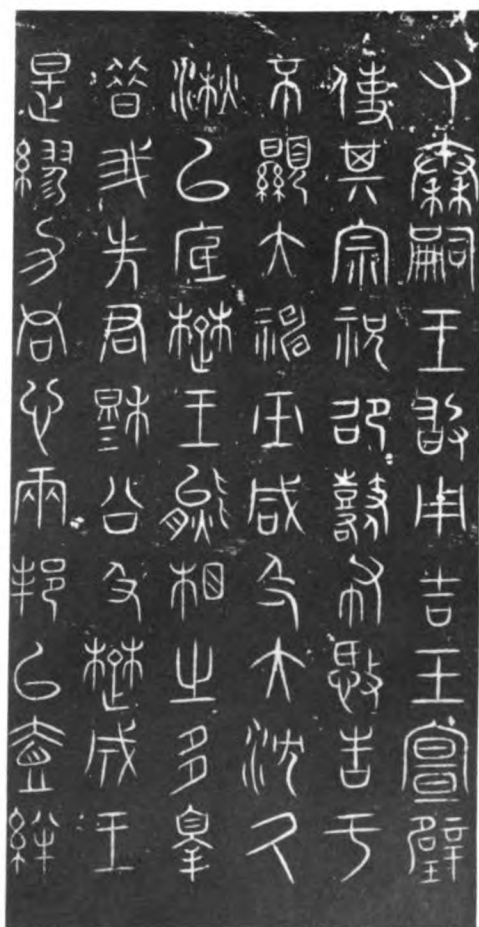 又秦嗣王敢用吉玉宣璧
使其宗祝邵鼛布愍告于
不顯大神巫咸及大沈久
湫以底楚王熊相之多辠
昔我先君穆公及楚成王
是繆力同心兩邦以壹絆